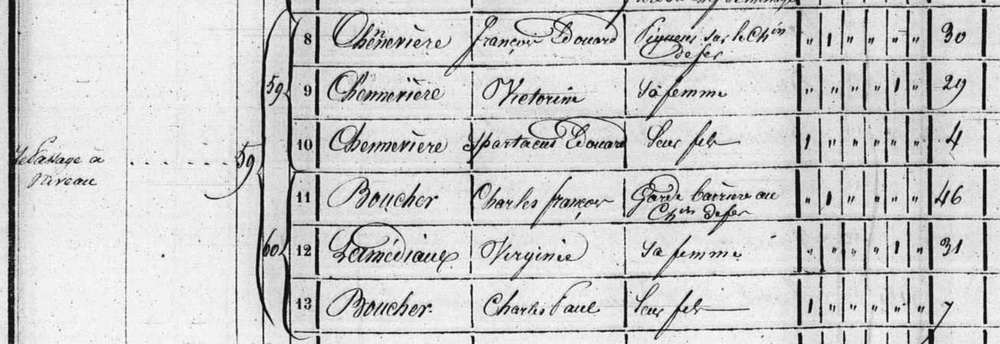 8 Chennevière François Edouard Piqueur sur le Chin
de fer " 1 " " " " 30
59 9 Chennevière Victorine Sa femme " " " " 1 " 29
10 Chennevière Spartacus Edouard Leur fils 1 " " " " " 4
Le Passage à
Niveau 59
11 Boucher Charles françois Garde barrière au
Chin de fer " 1 " " " " 46
60 12 Virginie Sa femme " " " " 1 " 31
13 Boucher Charles Paul Leur fils 1 " " " " " 7